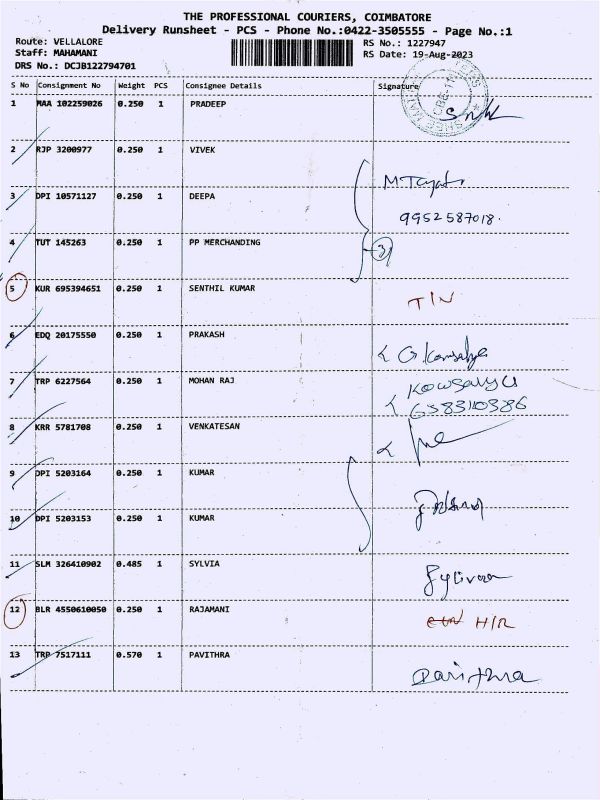 THE PROFESSIONAL COURIERS, COIMBATORE
Delivery Runsheet - PCS - Phone No.:0422-3505555 - Page No.:1
Route: VELLALORE RS No.: 1227947
Staff: MAHAMANI RS Date: 19-Aug-2023
DRS No.: DCJB122794701
S No Consignment No Weight PCS Consignee Details Signature
1 MAA 102259026 0.250 1 PRADEEP
2 RJP 3200977 0.250 1 VIVEK
3 DPI 10571127 0.250 1 DEEPA
9952587018.
4 TUT 145263 0.250 1 PP MERCHANDING
3
5 KUR 695394651 0.250 1 SENTHIL KUMAR
6 EDQ 20175550 0.250 1 PRAKASH
7 TRP 6227564 0.250 1 MOHAN RAJ Kowsalya
6383110386
8 KRR 5781708 0.250 1 VENKATESAN
9 DPI 5203164 0.250 1 KUMAR
10 DPI 5203153 0.250 1 KUMAR
11 SLM 326410902 0.485 1 SYLVIA
12 BLR 4550610050 0.250 1 RAJAMANI H/R
13 TRP 7517111 0.570 1 PAVITHRA Pavithra